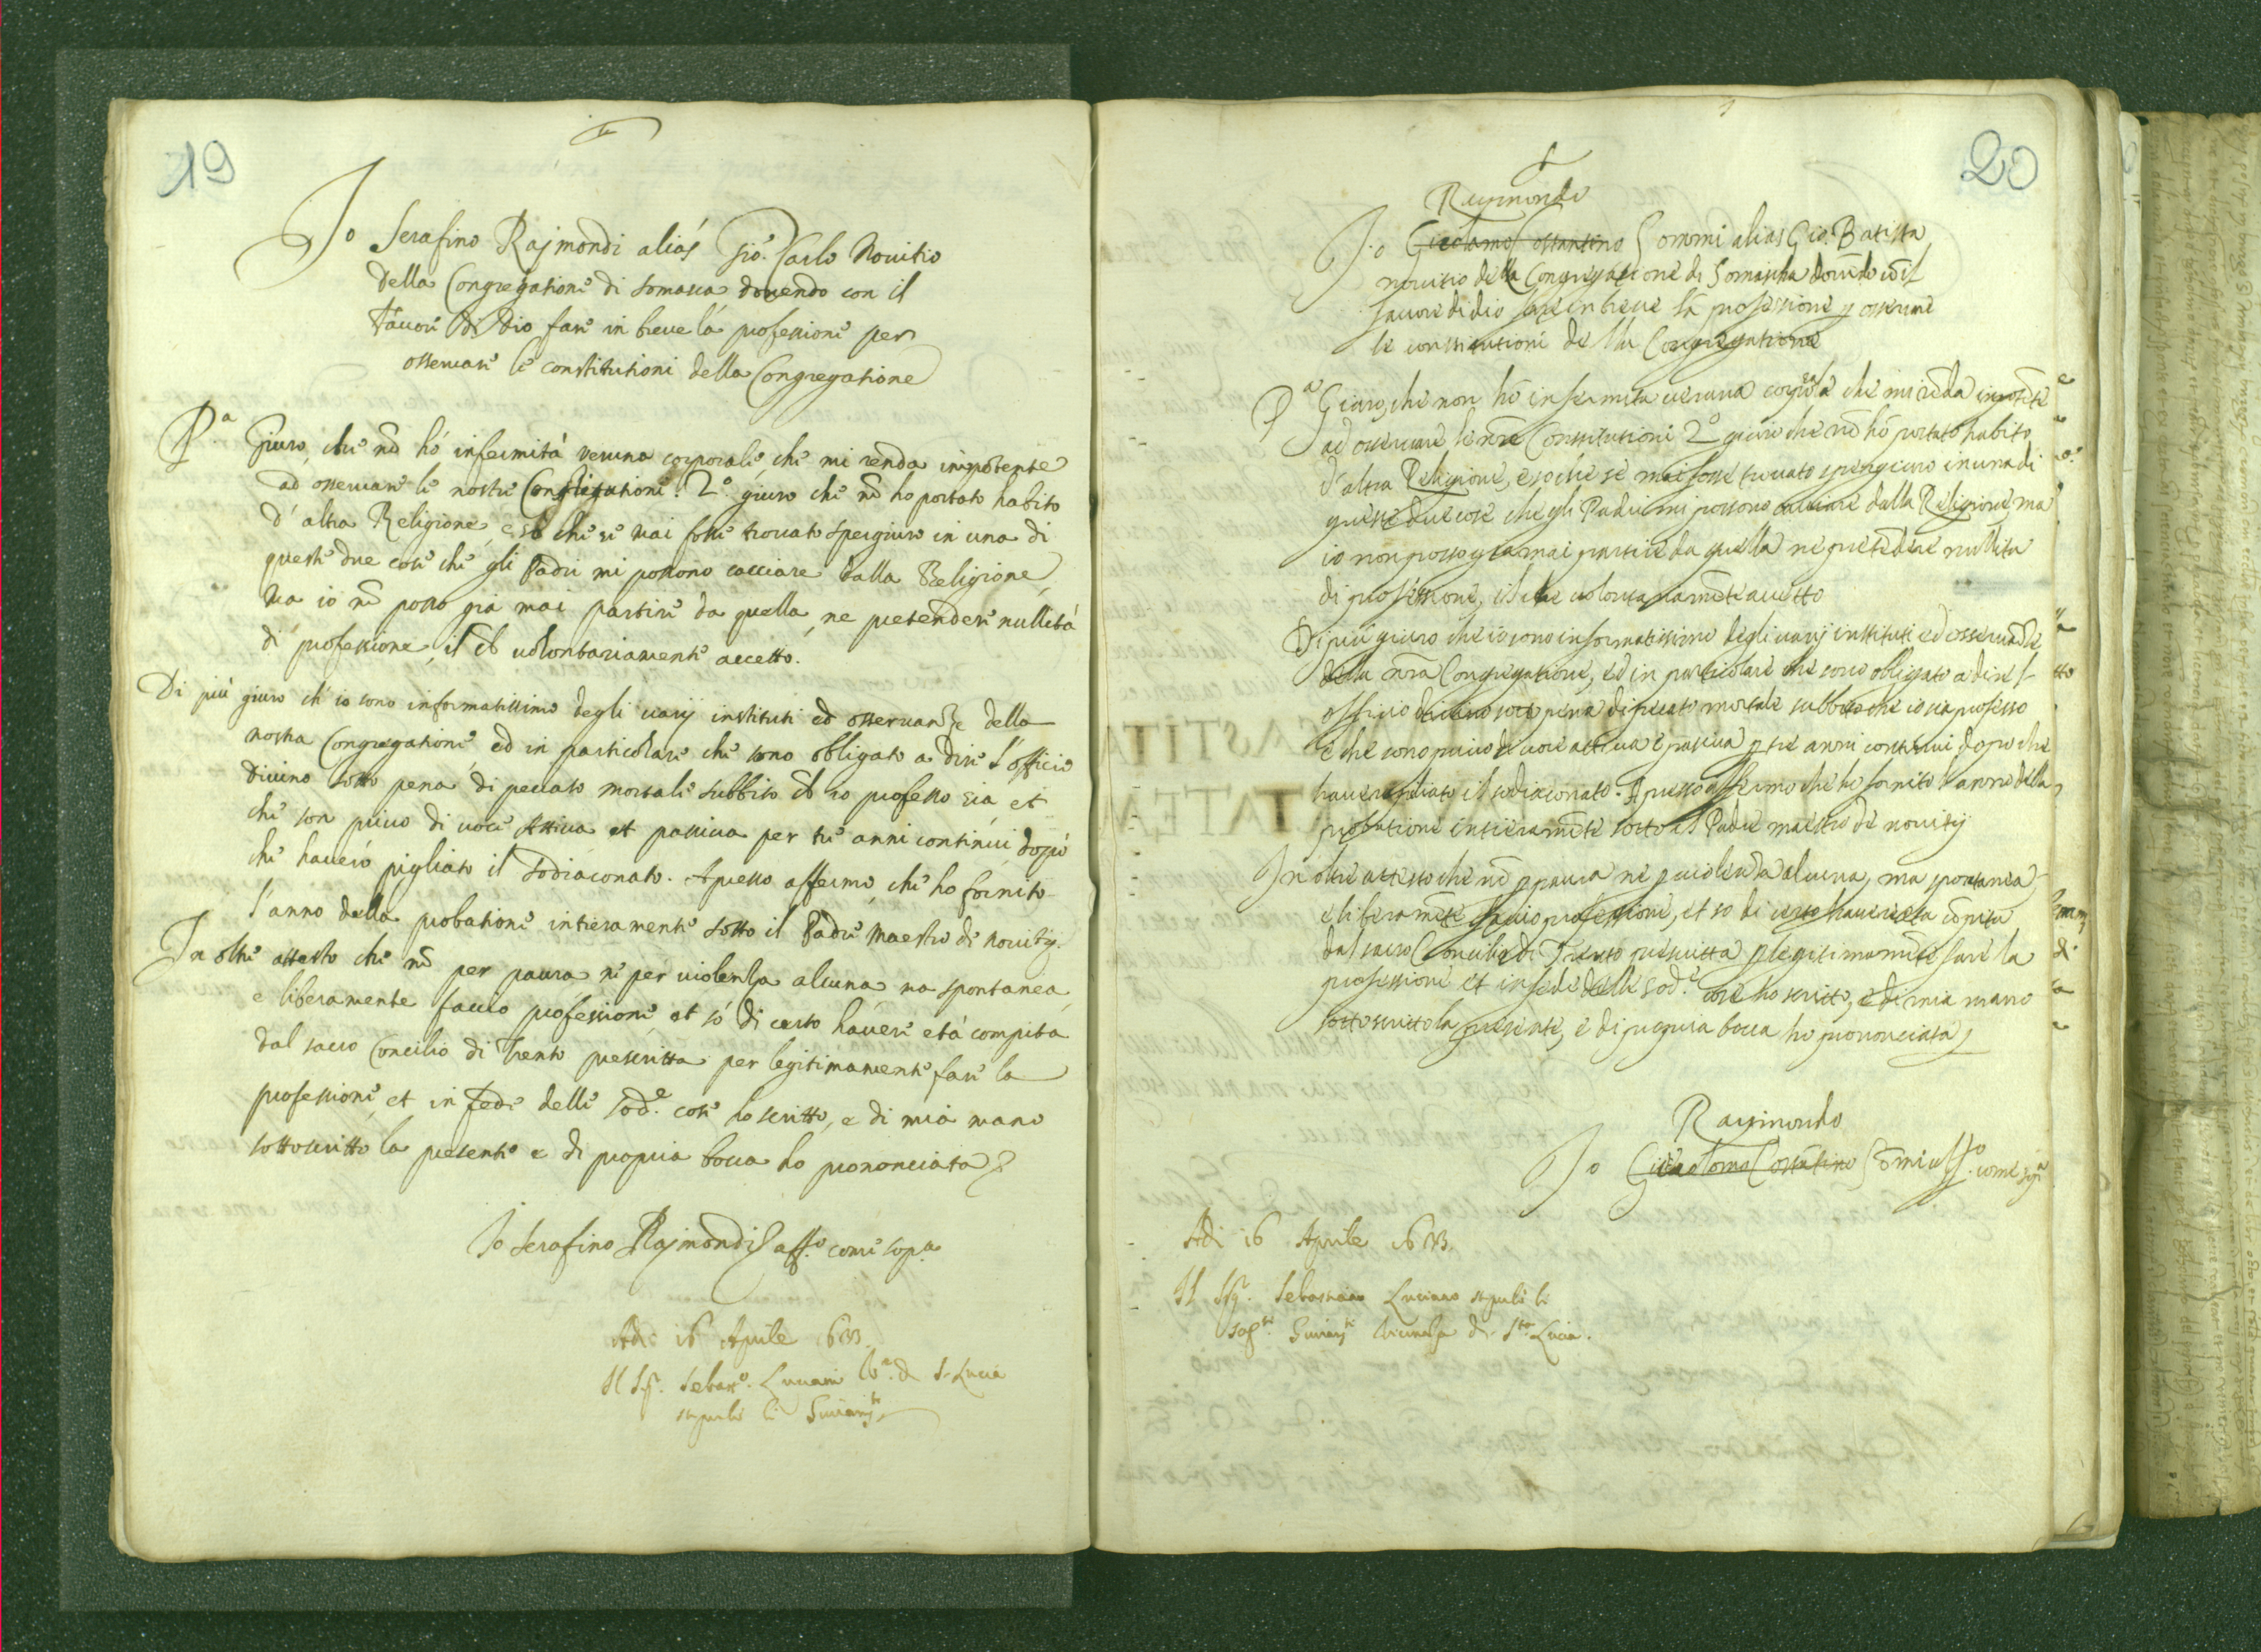 19
Io Serafino Rajmondi aliàs Giò. Carlo Novitio
della Congregatione di Somasca dovendo con il
favore di Dio fare in breve la professione per
osservare le constitutioni della Congregatione
P.a Giuro, che nō hò infermità veruna corporale che mi renda impotente
ad osservare le nostre Constitutioni. 2.o giuro che nō ho portato habito
d'altra Religione, e sò che se mai fosse trovato spergiuro in una di
queste due cose che gli Padri mi possono cacciare dalla Religione,
Ma io nō posso già mai partire da quella, ne pretendere nullità
di professione, il ch volontariamente accetto.
Di più giuro ch'io sono informatissimo degli varij instituti ed osservanze della
nostra Congregatione, ed in particolare che sono obligato a dire l'officio
divino sotto pena di peccato mortale subbito ch io professo sia, et
che son privo di voce Attiva et passiva per tre anni continui dopò
che haverò pigliato il sodiaconato. Apresso affermo, che ho fornito
l'anno della probatione intieramente sotto il Padre Maestro di novitij.
In oltre attesto che nō per paura, ne per violenza alcuna ma spontanea,
e liberamente faccio professione, et sò di certo havere età compita
dal sacro Concilio di Trento prescritta per legitimamente fare la
professione, et in fede delle sod.e cose ho scritto, e di mia mano
sottoscritto la presente e di propria bocca ho prononciata
Io Serafino Rajmondi aff.o come sop.a
Adi 16 Aprile 1633.
Il Sig.r Sebast.o Luciani di S. Lucia
li
20
Raymondo
Io Girolamo Costantino Sommi alias Gio. Batista
novitio della Congregatione di Somascha dovēdo cō il
favore di dio fare in breve la professione p osservare
le constitutioni della Congregatione
P.a Giuro, che non hò infermita veruna corporale che mi rēda inpotēte
ad osservare le nr̄e Constitutioni 2.o giuro che nō hò portato habito
d'altra Religione, e so che se mai fosse trovato spergiuro in una di
queste due cose che gli Padri mi possono cacciare dalla Religione, ma
io non posso gia mai partire da quella ne pretēdere nullita
di professione, il che volontariamēte accetto
Di piu giuro che io sono informatissimo degli varij instituti ed osservāze
della nr̄a Congregatione, ed in particolare che sono obligato a dire l
officio divino sotto pena di peccato mortale subbito che io sia professo
e che sono privo di voce attiva e passiva p tre anni continui dopo che
havero pigliato il sodiaconato. Apresso affermo che ho fornito l'anno della
probatione intieramēte sotto il Padre maestro de novitij
In oltre attesto che nō p paura ne p violēza alcuna, ma spontanea,
e liberamēte faccio professione, et so di certo havere eta cōpita
dal sacro Concilio di Trento prescritta p legitimamēte fare la
professione et in fede delle sod.e cose ho scritto, e di mia mano
sottoscritto la presente, e di propria bocca ho prononciata
Raymondo
Io Girolamo Costātino Sōmi aff.o come sop.a
Adi 16 Aprile 1633.
Il Sig.r Sebastiano Luciano li
di S.ta Lucia.